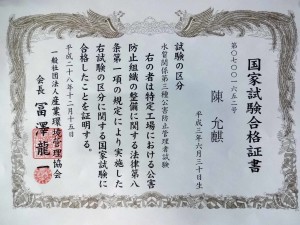 国家試験合格証書
第〇七〇〇一六五二号
陳 允麒
平成三年六月三十日生
試験の区分
水質関係第三種公害防止管理者試験
右の者は特定工場における公害
防止組織の整備に関する法律第八
条第一項の規定により実施した
右試験の区分に関する国家試験に
合格したことを証明する。
平成二十八年十二月十五日
一般社団法人産業環境管理協会
会長 冨澤龍一